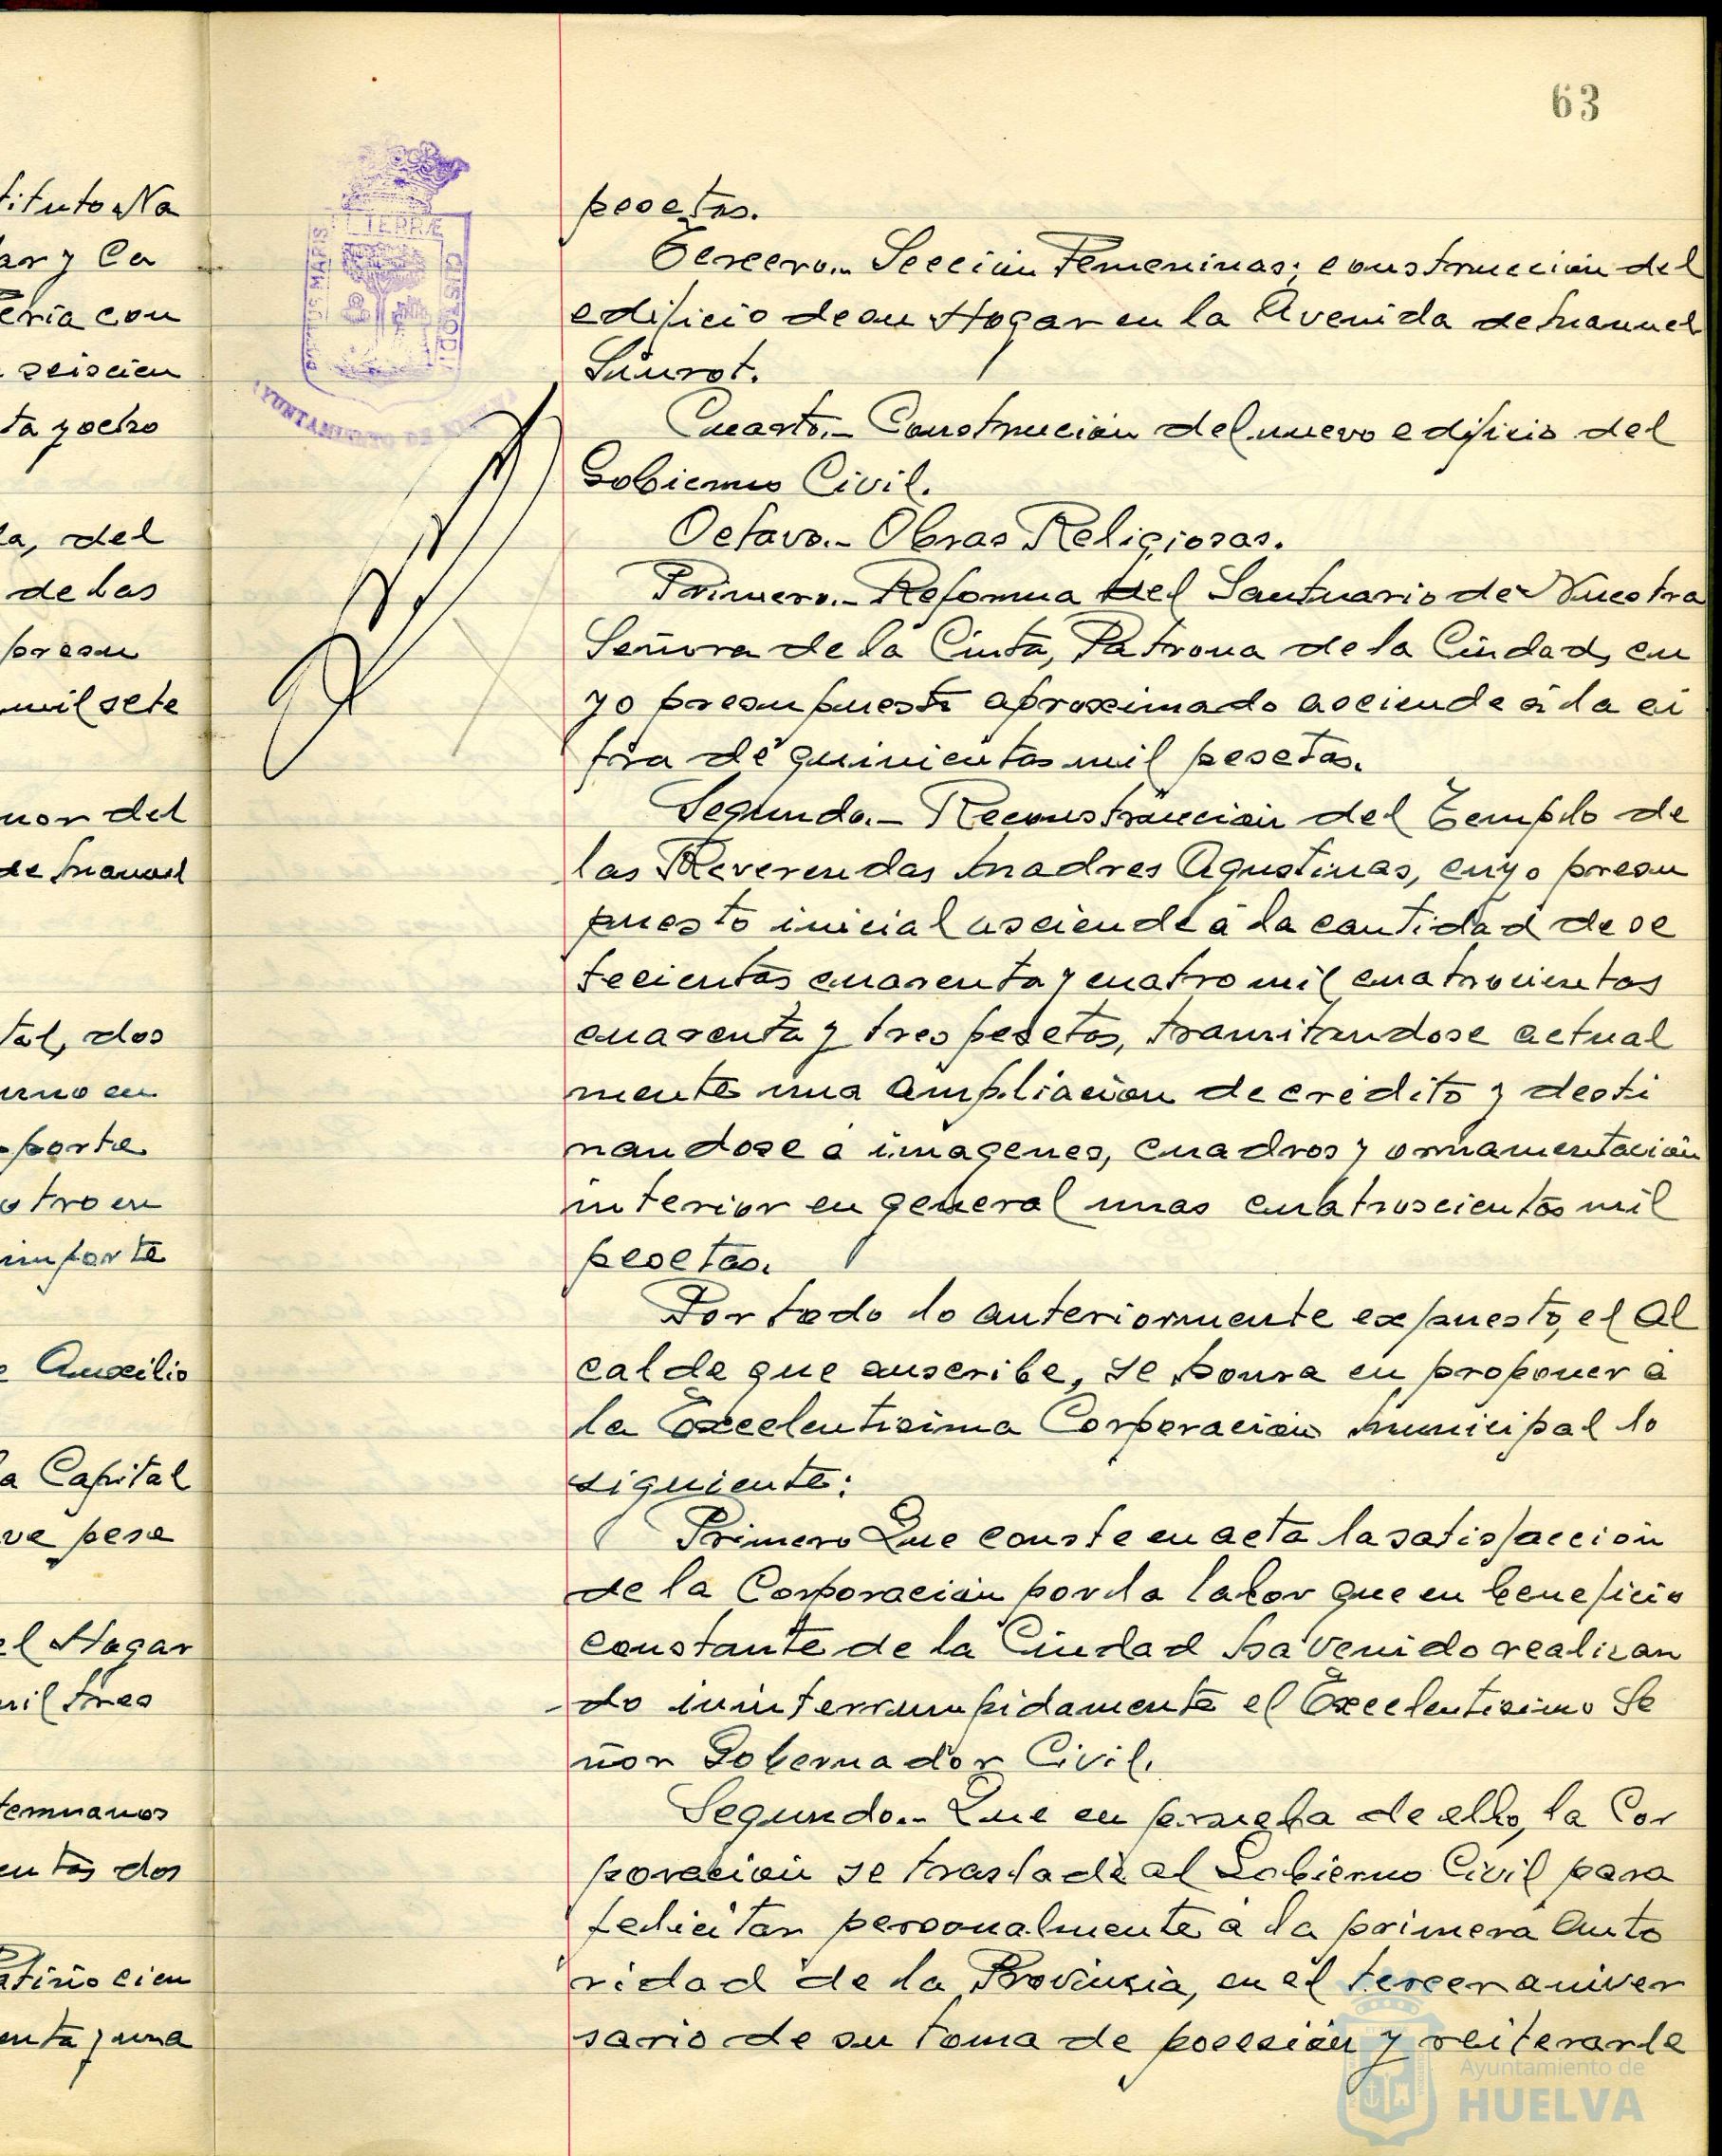 63
tituto Na
ar y Ca
ería con
seiscien
ta y ocho
a, del
de las
presu
mil sete
nor del
de Manuel
tal, dos
urno en
porte
otro en
importe
Auxilio
a Capital
ve pese
el Hogar
mil tres
termanos
entos dos
atiño cien
enta y una
PORTUS MARIS ET TERRÆ CUSTODIA
AYUNTAMIENTO DE HUELVA
pesetas.
Tercero.- Sección Femeninas; construcción del
edificio de su Hogar en la Avenida de Manuel
Siurot.
Cuarto.- Construcion del nuevo edificio del
Gobierno Civil.
Octavo.- Obras Religiosas.
Primero.- Reforma del Santuario de Nuestra
Señora de la Cinta, Patrona de la Ciudad, cu
yo presupuesto aproximado asciende á la ci
fra de quinientas mil pesetas.
Segundo.- Reconstrucción del Templo de
las Reverendas Madres Agustinas, cuyo presu
puesto inicial asciende á la cantidad de se
tecientas cuarenta y cuatro mil cuatrocientas
cuarenta y tres pesetas, tramitandose actual
mente una ampliación de crédito y desti
nandose a imagenes, cuadros y ornamentación
interior en general unas cuatroscientas mil
pesetas.
Por todo lo anteriormente expuesto, el Al
calde que suscribe, se honra en proponer á
la Excelentisima Corporación Municipal lo
siguiente:
Primero Que conste en acta la satisfacción
de la Corporación por la labor que en beneficio
constante de la Ciudad ha venido realizan
do ininterrumpidamente el Excelentisimo Se
ñor Gobernador Civil.
Segundo.- Que en prueba de ello, la Cor
poración se traslade al Gobierno Civil para
felicitar personalmente á la primera Auto
ridad de la Provincia, en el tercer aniver
sario de su toma de posesión y reiterarle
Ayuntamiento de
HUELVA